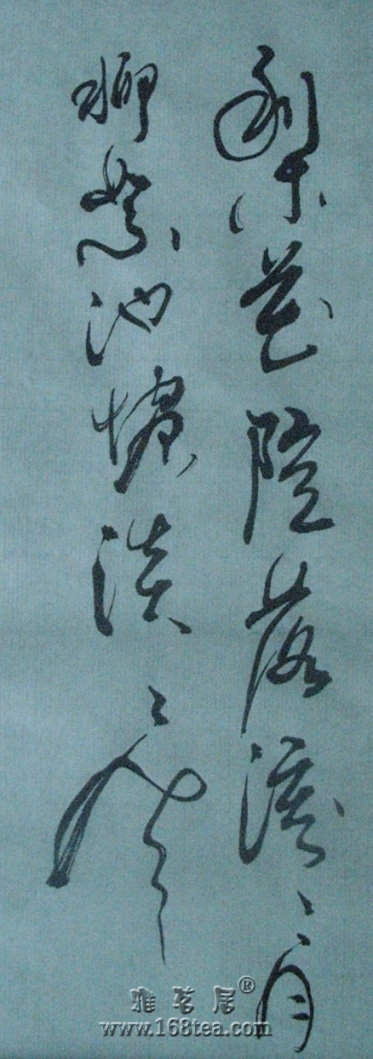 梨花院落溶〻月
柳絮池塘淡〻風
雅茗居®
www.168tea.com